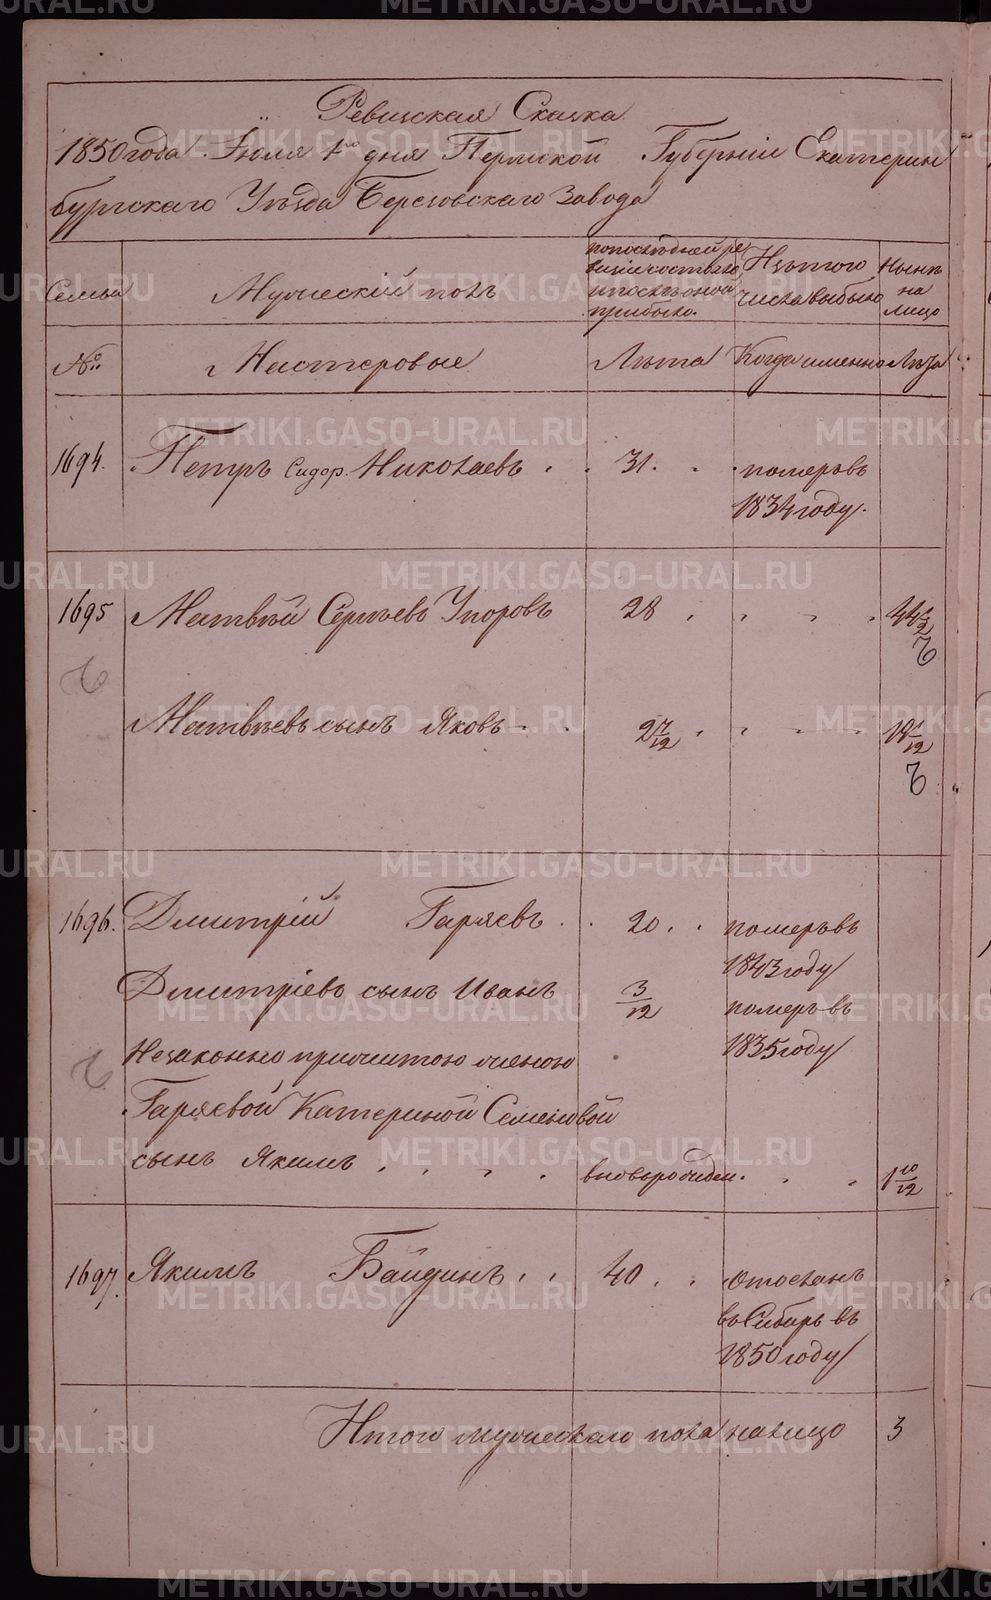 Ревижская Сказка
1850 года Іюля 1го дня Пермской Губерніи Екатерин
бургскаго Уезда Березовскаго Завода
Семьи
Мужескій полъ
по последней ре
визіи состояло
и после оной
прибыло.
Изъ того
числа выбыло
Ныне
на
лицо
№
Мастеровые
Лета
Когда именно
Лета
1694.
Петръ Сидор. Николаевъ
31.
померъ въ
1834 году.
1695
Матвей Сергеевъ Упоровъ
28
44 1/2
Матвеевъ сынъ Яковъ
2 7/12
18 1/12
1696.
Дмитрій Гаряевъ
20
померъ въ
1843 году
Дмитріевъ сынъ Иванъ
3/12
померъ въ
1835 году
Незаконно прижитой женою
Гаряевой Катериной Семеновой
сынъ Якимъ
вновь рожден.
1 10/12
1697.
Якимъ Байдинъ
40
отосланъ
въ Сибирь въ
1850 году
Итого мужескаго пола налицо 3
METRIKI.GASO-URAL.RU